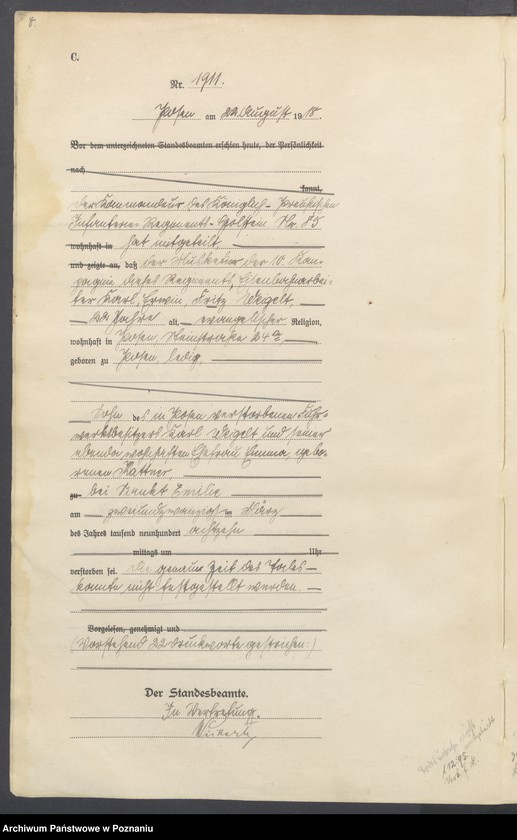 8.
C.
Nr. 1911.
Posen am 22 August 1918.
Vor dem unterzeichneten Standesbeamten erschien heute, der Persönlichkeit
nach
kannt,
Der Kommandeur des Königlich-Preußischen
Infanterie-Regiments-Holstein Nr. 85
wohnhaft in hat mitgeteilt,
und zeigte an, daß der Musketier der 10. Kom-
pagnie dieses Regiments, Eisenbahnarbei-
ter Karl Erwin Fritz Wegelt,
22 Jahre alt, evangelischer Religion,
wohnhaft in Posen, 24a
geboren zu Posen, ledig,
Sohn des in Posen verstorbenen Fuhr-
werksbesitzers Karl Wegelt und seiner
ebenda wohnhaften Ehefrau Emma, gebo-
renen Kattner,
zu bei Sankt Emilie
am zweiundzwanzigsten März
des Jahres tausend neunhundert achtzehn
mittags um Uhr
verstorben sei. Die genaue Zeit des Todes
konnte nicht festgestellt werden.
Vorgelesen, genehmigt und
(Vorstehend 22 Druckworte gestrichen.)
Der Standesbeamte.
In Vertretung.
Archiwum Państwowe w Poznaniu